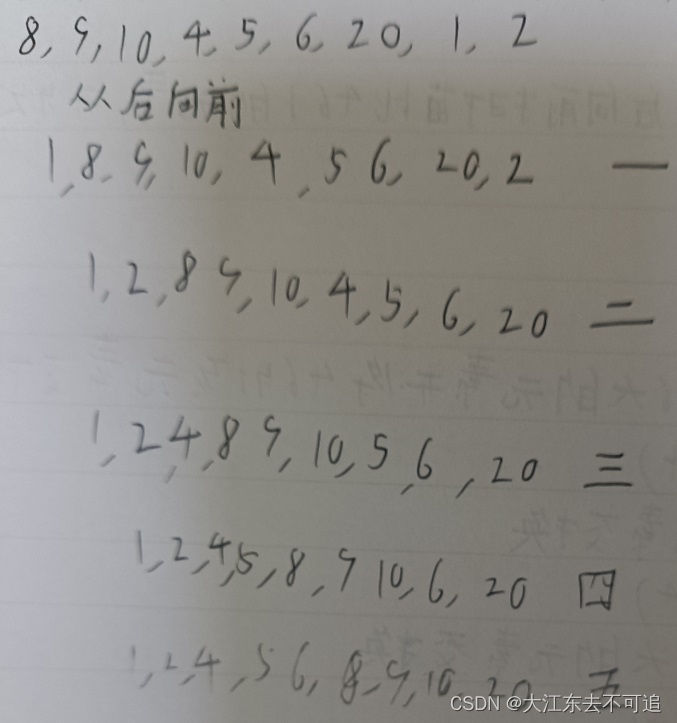 8, 9, 10, 4, 5, 6, 20, 1, 2
从后向前
1, 8, 9, 10, 4, 5 6, 20, 2 一
1, 2, 8 9, 10, 4, 5, 6, 20 二
1, 2 4, 8 9, 10, 5, 6, 20 三
1, 2, 4, 5, 8, 9 10, 6, 20 四
1, 2, 4, 5 6, 8, 9, 10 20 五
CSDN @大江东去不可追